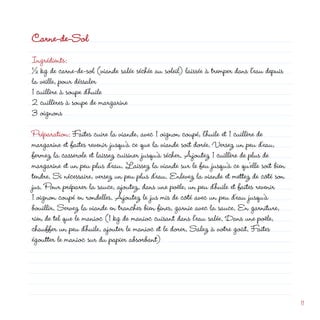 Carne-de-Sol
Ingrédients:
½ kg de carne-de-sol (viande salée séchée au soleil) laissée à tremper dans l'eau depuis
la veille, pour déssaler
1 cuillère à soupe d'huile
2 cuillères à soupe de margarine
3 oignons
Préparation: Faites cuire la viande, avec 1 oignon coupé, l'huile et 1 cuillère de
margarine et faites revenir jusqu'à ce que la viande soit dorée. Versez un peu d'eau,
fermez la casserole et laissez cuisiner jusqu'à sécher. Ajoutez 1 cuillère de plus de
margarine et un peu plus d'eau. Laissez la viande sur le feu jusqu'à ce qu'elle soit bien
tendre. Si nécessaire, versez un peu plus d'eau. Enlevez la viande et mettez de côté son
jus. Pour préparer la sauce, ajoutez, dans une poêle, un peu d'huile et faites revenir
1 oignon coupé en rondelles. Ajoutez le jus mis de côté avec un peu d'eau jusqu'à
bouillir. Servez la viande en tranches bien fines, garnie avec la sauce. En garniture,
rien de tel que le manioc (1 kg de manioc cuisant dans l'eau salée. Dans une poêle,
chauffer un peu d'huile, ajouter le manioc et le dorer. Salez à votre goût. Faites
égoutter le manioc sur du papier absorbant)